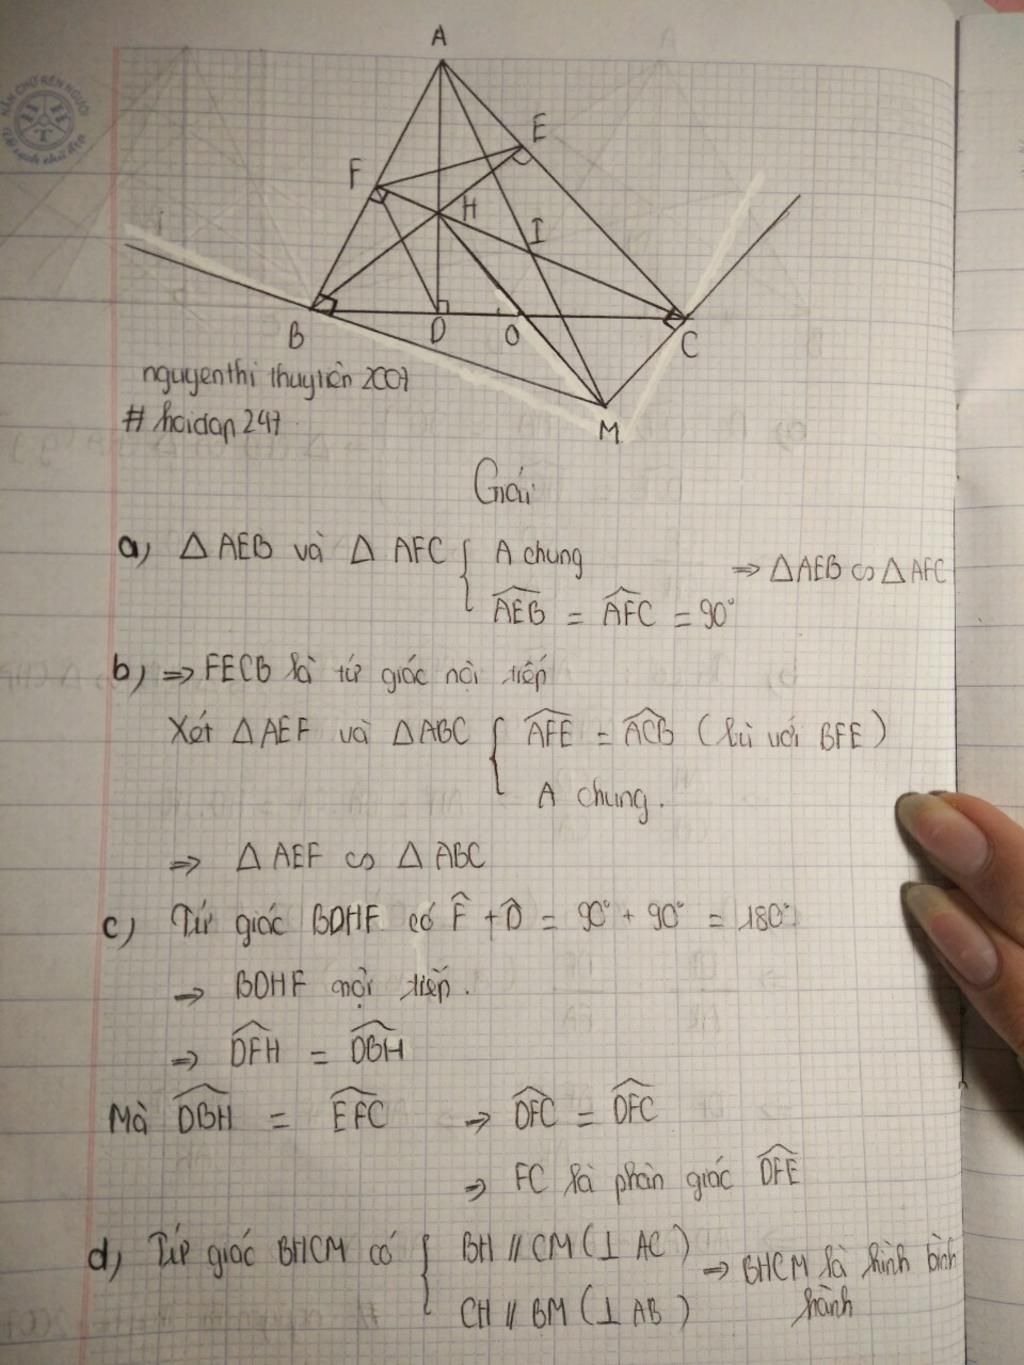 A
E
F
H
I
B
D
O
C
M
nguyenthi thuytiên 2007
# hoidap 247
Giải
a) △ AEB và △ AFC { A chung
AEB = AFC = 90° ⇒ △AEB ∽ △AFC
b) ⇒ FECB là tứ giác nội tiếp
Xét △AEF và △ABC { AFE = ACB (bù với BFE)
A chung.
⇒ △ AEF ∽ △ ABC
c) Tứ giác BDHF có F̂ + D̂ = 90° + 90° = 180°
⇒ BDHF nội tiếp.
⇒ DFH = DBH
Mà DBH = EFC ⇒ DFC = DFC
⇒ FC là phân giác DFE
d) Tứ giác BHCM có { BH // CM (⊥ AC)
CH // BM (⊥ AB) ⇒ BHCM là hình bình
hành